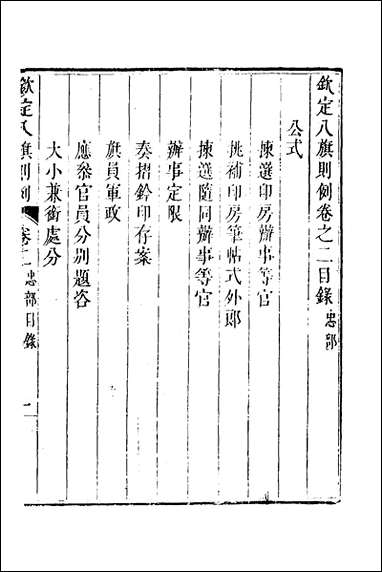 欽定八旗則例卷之二目錄 忠部
公式
揀選印房辦事等官
挑補印房筆帖式外郎
揀選隨同辦事等官
辦事定限
奏摺鈐印存案
旗員軍政
應叅官員分別題咨
大小兼銜處分
欽定八旗則例 卷二 忠部目錄 一